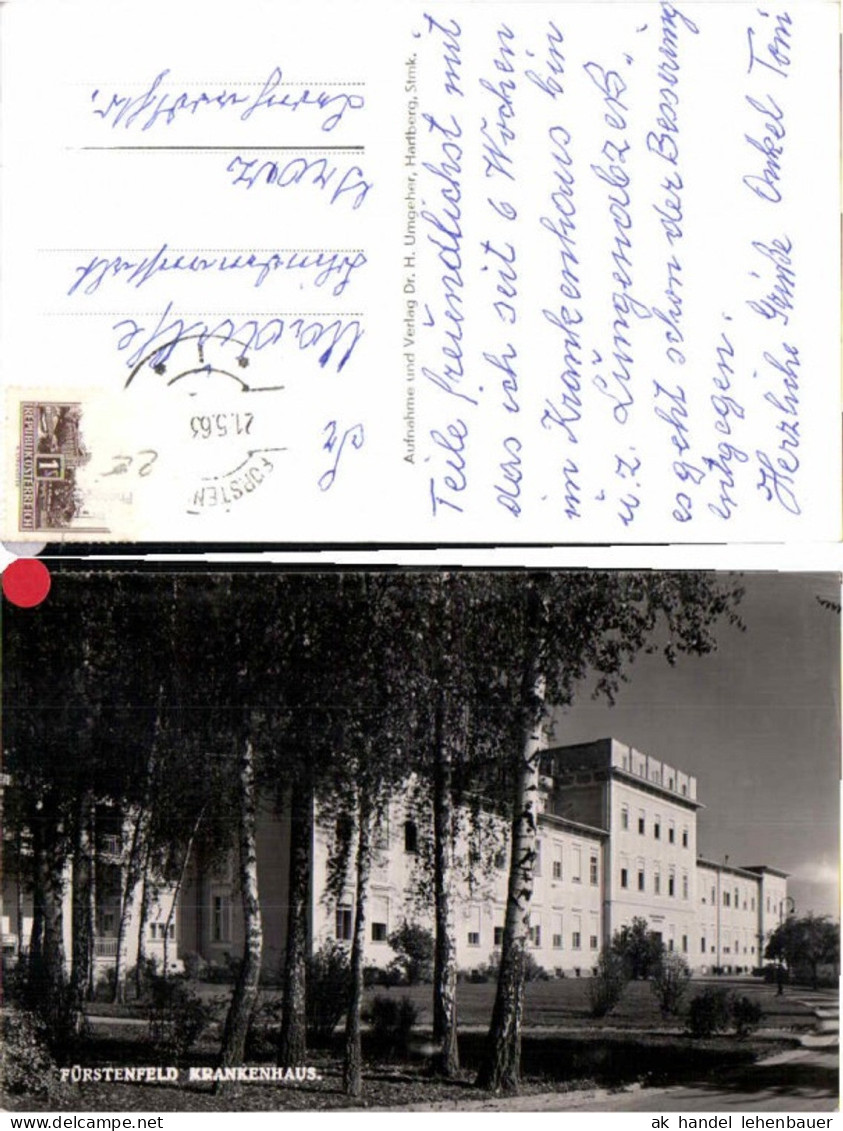 Teile freundlichst mit
das ich seit 6 Wochen
im Krankenhaus bin
u. z. „Lungenabzeß"
es geht schon der Besserung
entgegen.
Herzliche Grüße Onkel Toni
Aufnahme und Verlag Dr. H. Umgeher, Hartberg, Stmk.
Graz
REPUBLIK ÖSTERREICH
1 S
21.5.63
FÜRSTEN
FÜRSTENFELD KRANKENHAUS.
ak handel lehenbauer